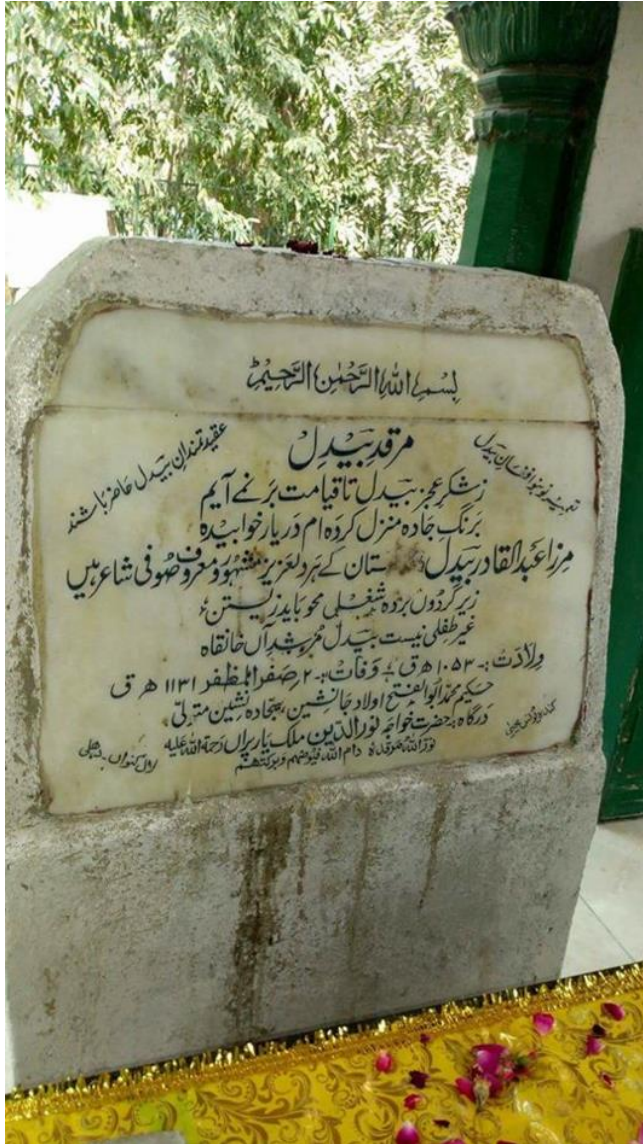 بسم اللہ الرحمن الرحیم
مرقد بیدل
عقیدتمندان بیدل حاضر باشند
زشکر عجز بیدل تا قیامت بر نمے آیم
برنگ جادہ منزل کردہ ام در یار خوابیدہ
مرزا عبد القادر بیدل ستان کے ہردلعزیز مشہور و معروف صوفی شاعر ہیں
زیر گردوں بردہ شغلی محو باید زیستن
غیر طفلی نیست بیدل مرشد آں خانقاہ
ولادت :- ۱۰۵۳ ھ ق وفات :- ۲ صفر المظفر ۱۱۳۱ ھ ق
حکیم محمد ابو الفتح اولاد جانشین سجادہ نشین متولی
درگاہ :- حضرت خواجہ نور الدین ملک یار پراں رحمۃ اللہ علیہ
نور اللہ مرقدہ دام اللہ فیوضہم وبرکتہم